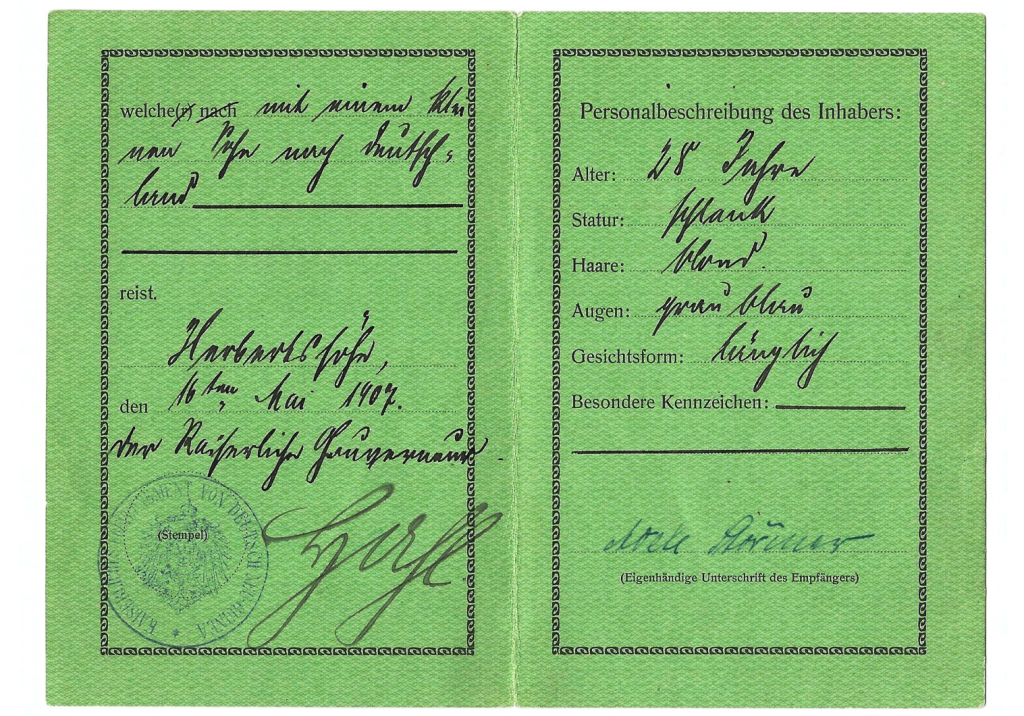 welche(r) nach mit einem klei
nen Sohne nach Deutsch=
land
reist.
Herbertshöhe,
den 16ten Mai 1907.
Der Kaiserliche Gouverneur
KAISERLICHES GOUVERNEMENT VON DEUTSCH NEU-GUINEA
(Stempel)
Hahl.
Personalbeschreibung des Inhabers:
Alter: 28 Jahre
Statur: schlank
Haare: blond.
Augen: graublau
Gesichtsform: länglich
Besondere Kennzeichen:
(Eigenhändige Unterschrift des Empfängers)